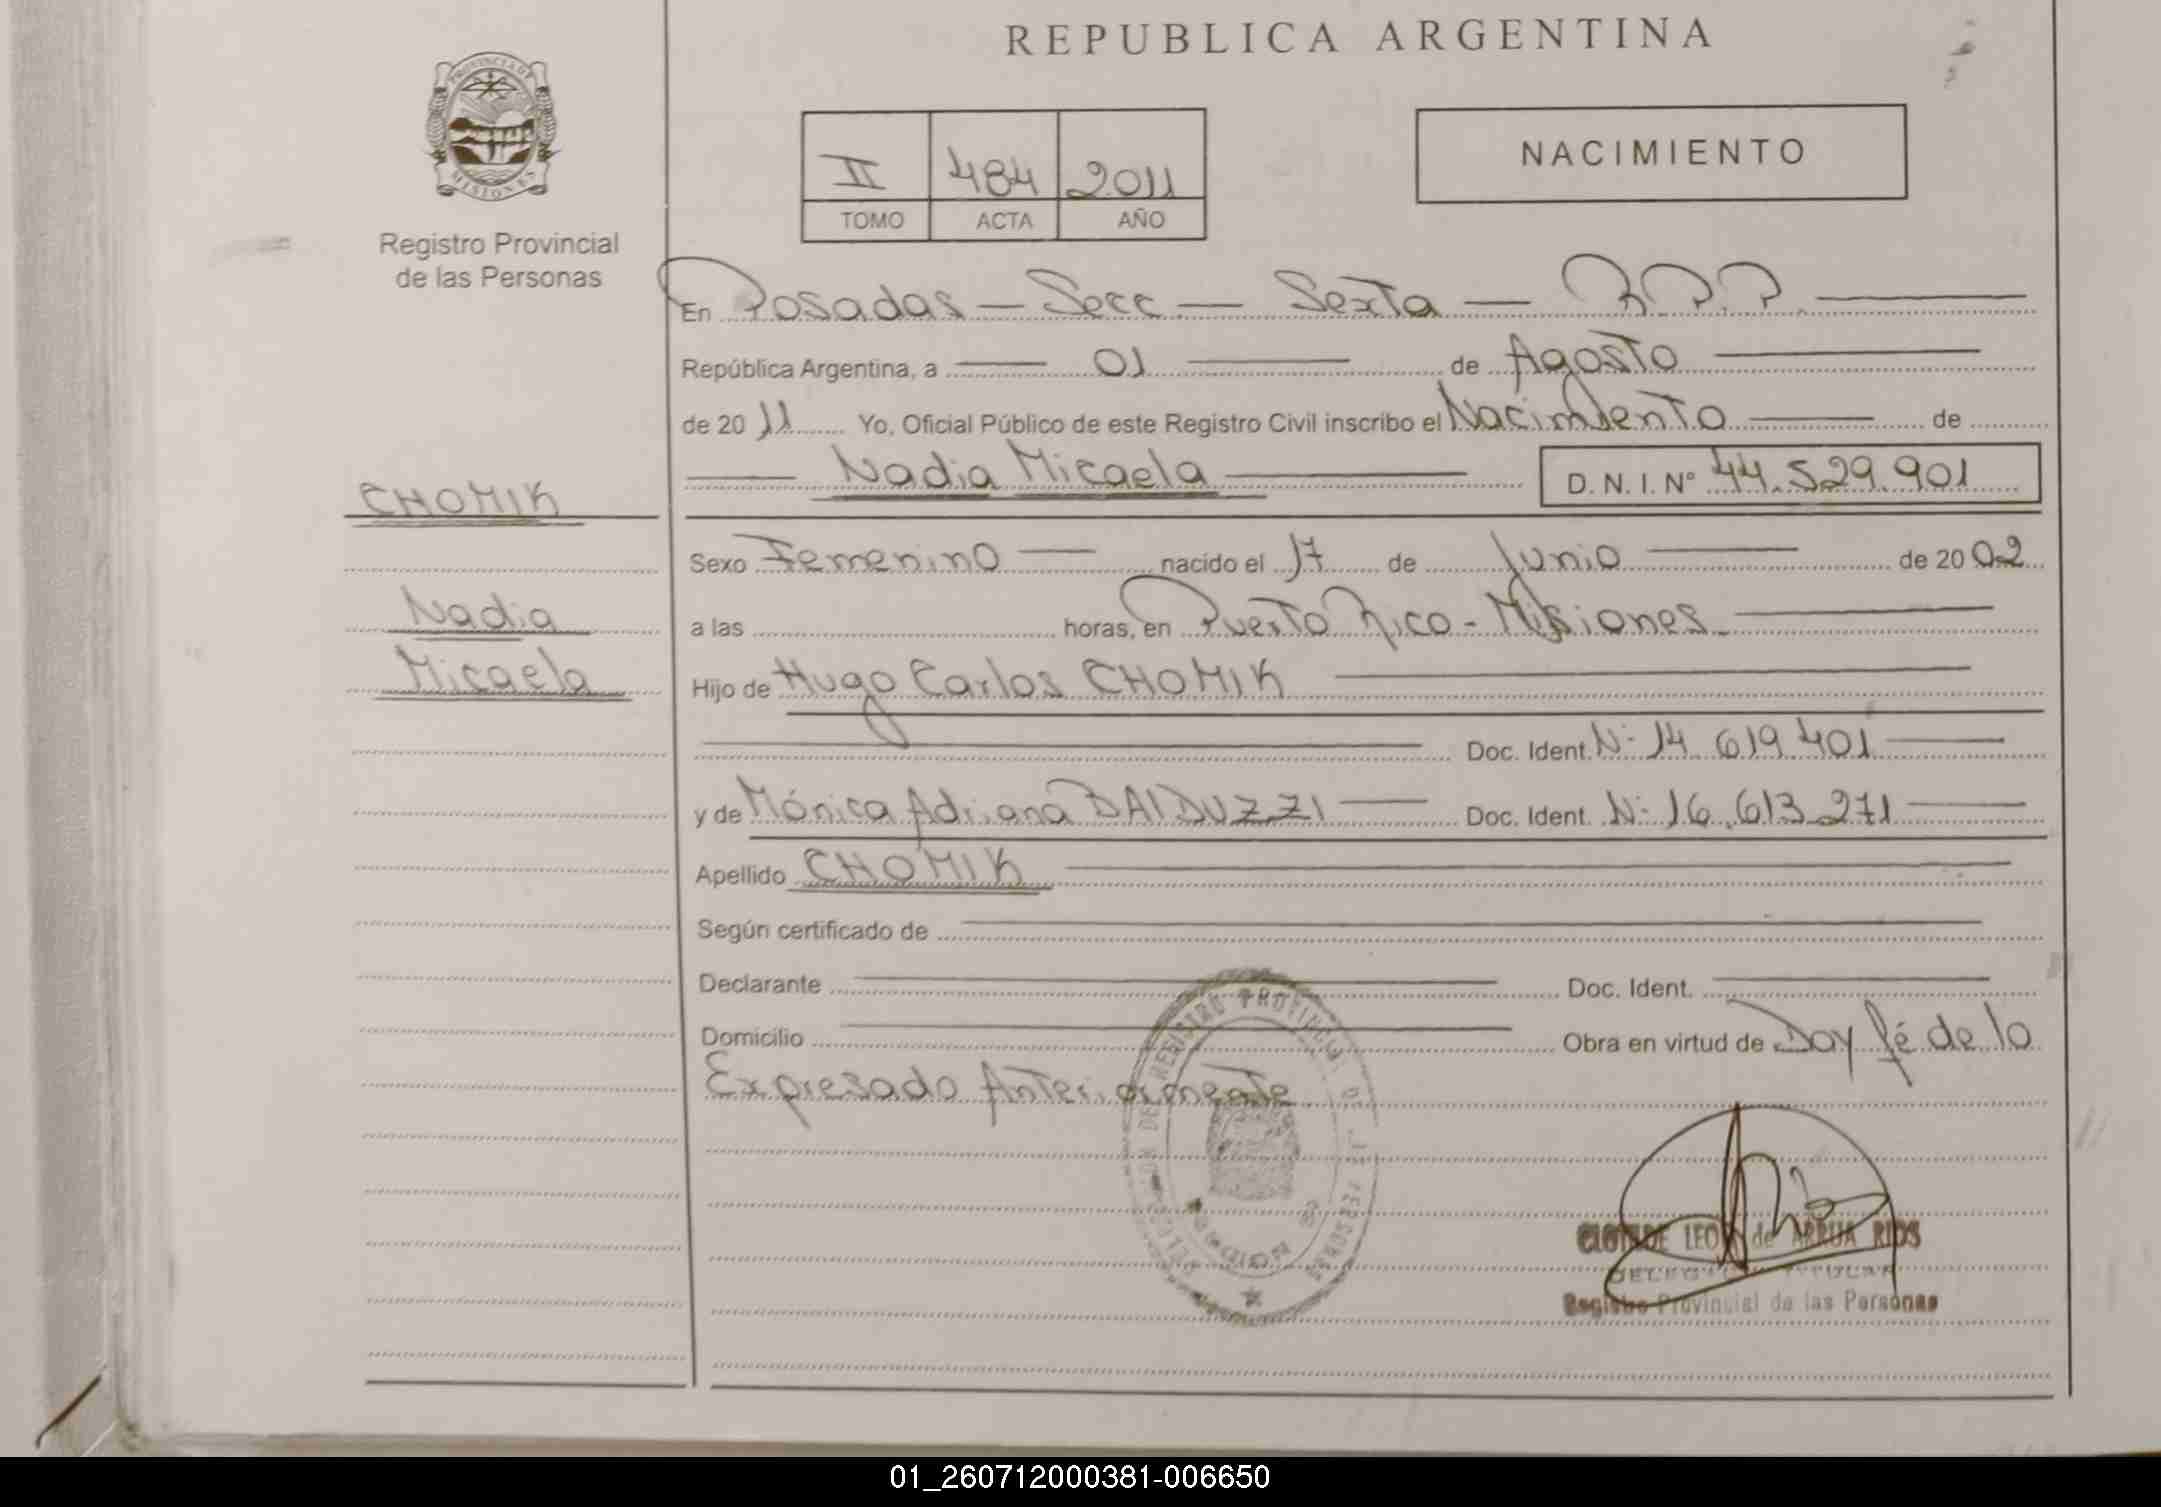 REPUBLICA ARGENTINA
PROVINCIA DE MISIONES
Registro Provincial
de las Personas
II 484 2011
TOMO ACTA AÑO
NACIMIENTO
En Posadas — Secc — Sexta — R.P.P.
República Argentina, a 01 de Agosto
de 2011 Yo, Oficial Público de este Registro Civil inscribo el Nacimiento de
Nadia Micaela D.N.I. Nº 44.529.901
CHOMIK
Nadia
Micaela
Sexo Femenino nacido el 17 de Junio de 2002
a las horas, en Puerto Rico - Misiones
Hijo de Hugo Carlos CHOMIK
Doc. Ident. Nº 14 619 401
y de Mónica Adriana BALDUZZI Doc. Ident. Nº 16.613.271
Apellido CHOMIK
Según certificado de
Declarante Doc. Ident.
Domicilio Obra en virtud de Doy fé de lo
Expresado Anteriormente
REGISTRO PROVINCIAL DE LAS PERSONAS
CLOTILDE LEON de ARRUA RIOS
DELEGADA TITULAR
Registro Provincial de las Personas
01_260712000381-006650